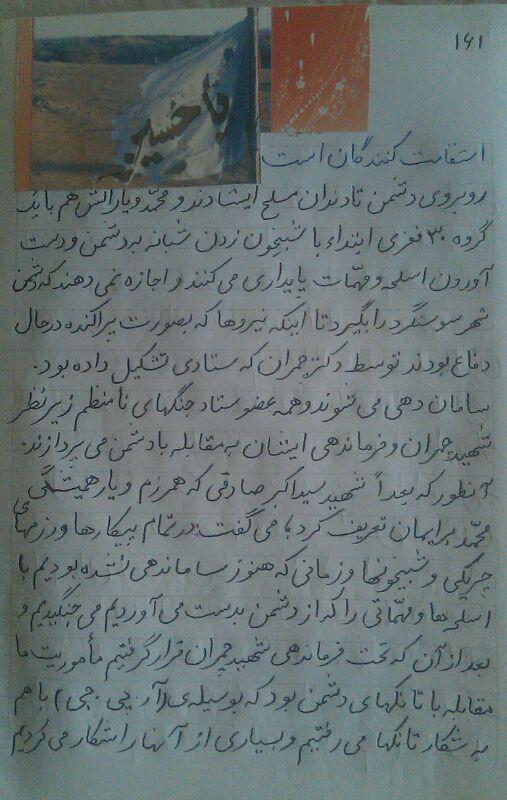 ۱۶۱
یا حسین
استقامت کنندگان است
روبروی دشمن تا دندان مسلح ایستادند و محمد و یارانش هم با یک
گروه ۳۰ نفری ابتداء با شبیخون زدن شبانه به دشمن و دست
آوردن اسلحه و مهمّات پایداری می کنند و اجازه نمی دهند که دشمن
شهر سوسنگرد را بگیرد تا اینکه نیروها که بصورت پراکنده در حال
دفاع بودند توسط دکتر چمران که ستادی تشکیل داده بود.
سامان دهی می شوند و همه عضو ستاد جنگهای نامنظم زیر نظر
شهید چمران و فرماندهی ایشان به مقابله با دشمن می پردازند.
آنطور که بعداً شهید سید اکبر صادقی که همرزم و یار همیشگی
محمّد برایمان تعریف کرد؛ می گفت: در تمام پیکارها و رزمهای
چریکی و شبیخونها و زمانی که هنوز ساماندهی نشده بودیم با
اسلحه ها و مهمّاتی را که از دشمن بدست می آوردیم می جنگیدیم و
بعد از آن که تحت فرماندهی شهید چمران قرار گرفتیم مأموریت ما
مقابله با تانکهای دشمن بود که بوسیله ی (آر.پی.جی) با هم
به شکار تانکها می رفتیم و بسیاری از آنها را شکار می کردیم